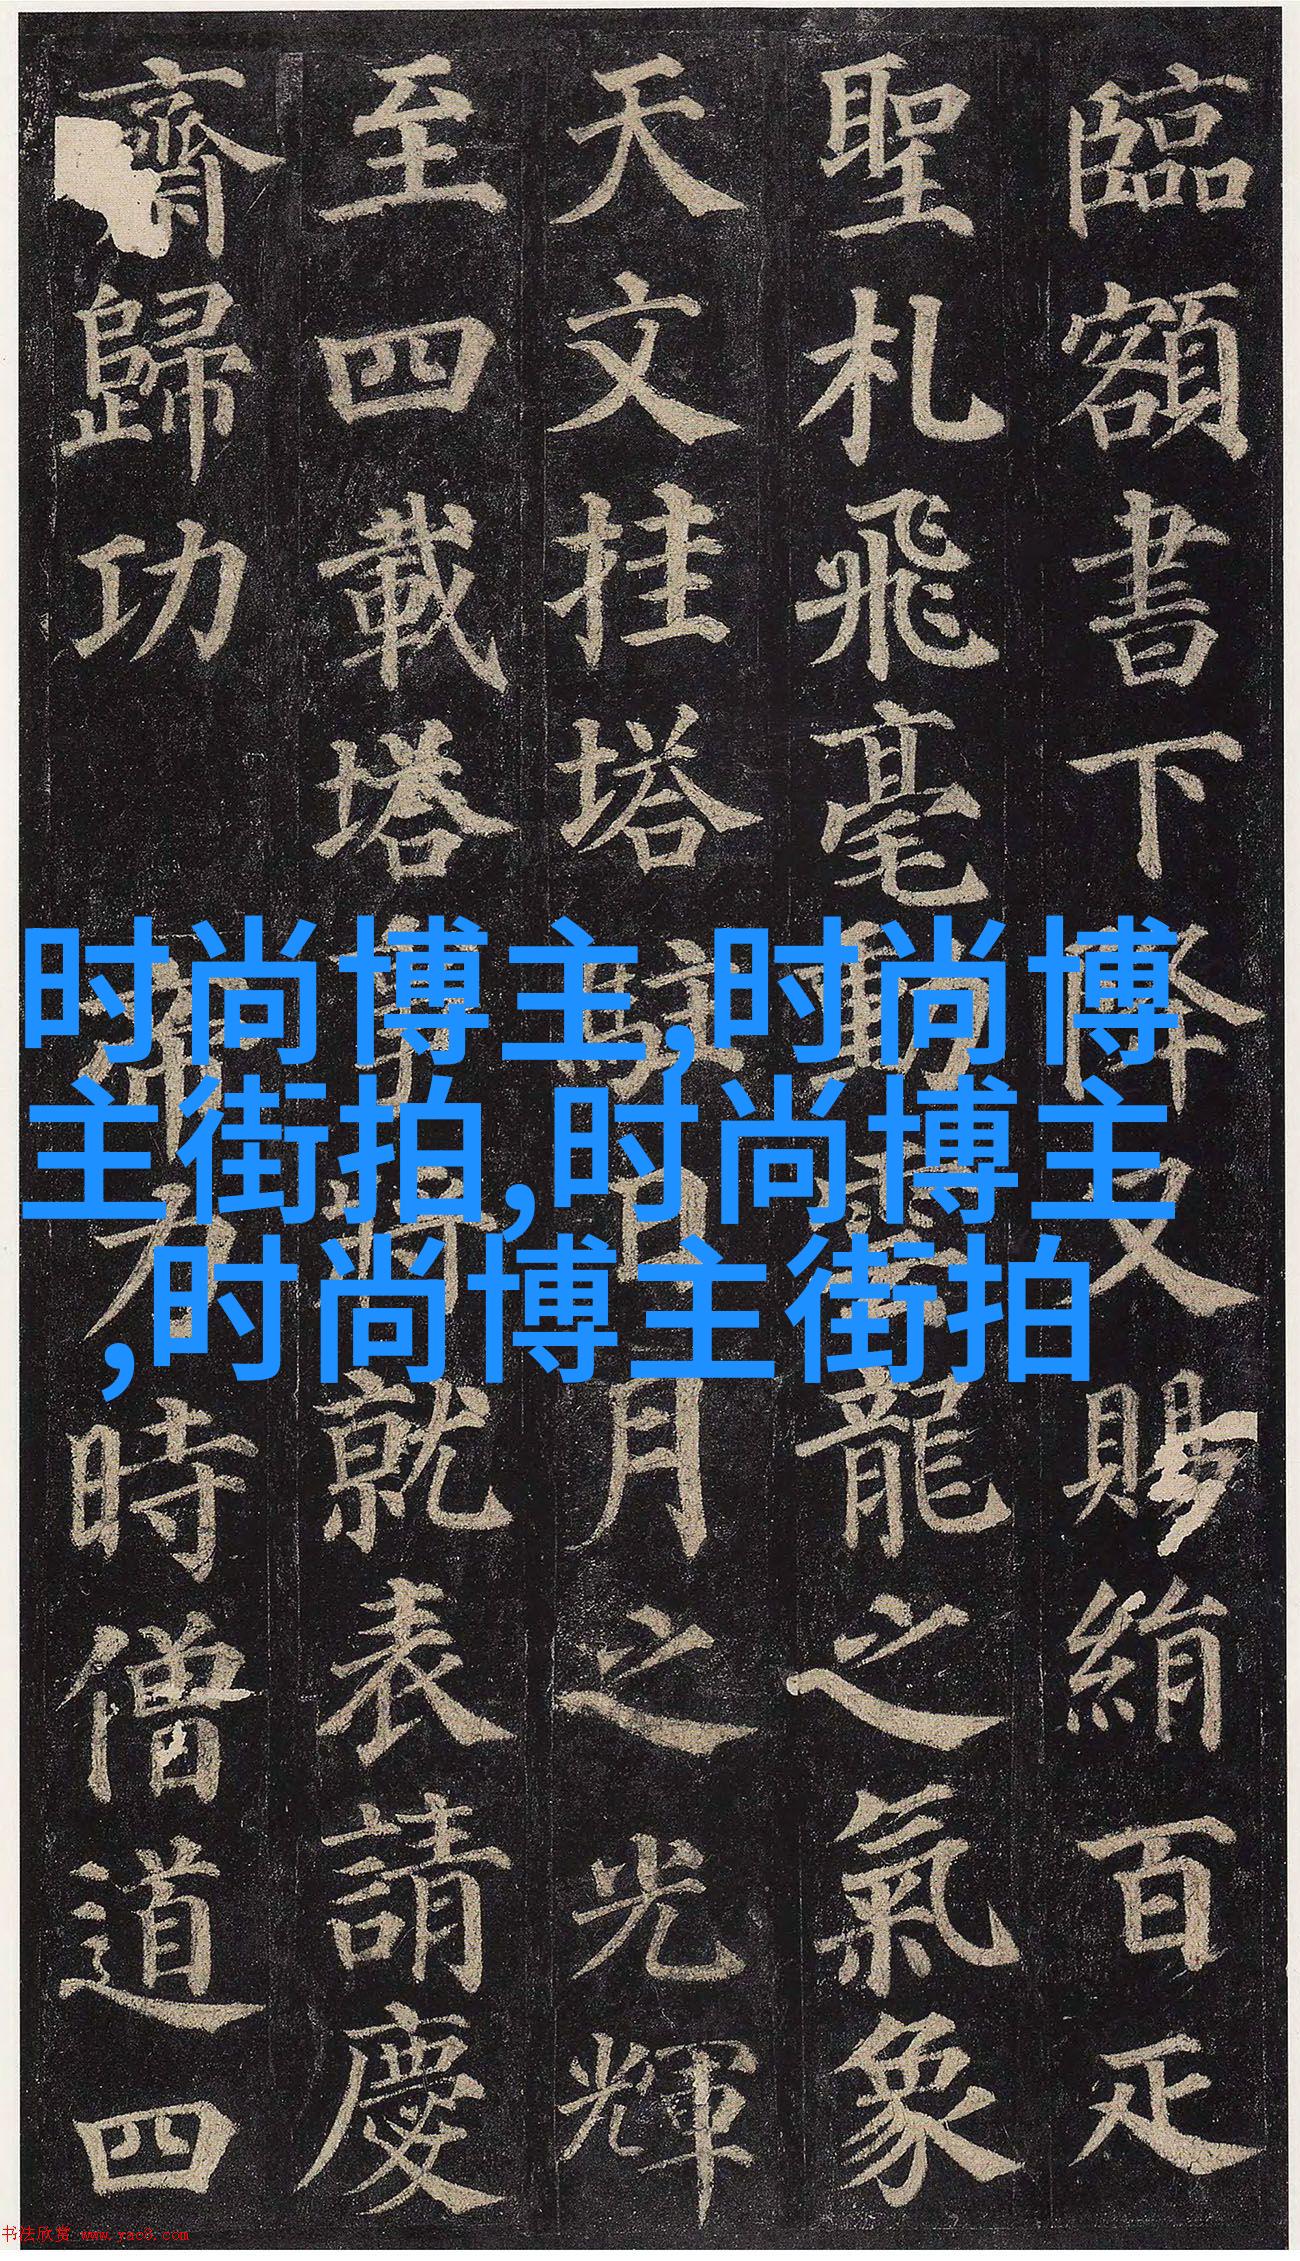 臨額書下降又賜絹百疋
聖札飛毫動雲龍之氣象
天文挂塔駐日月之光輝
至四載塔事將就表請慶
齋歸功 帝力時僧道四
时尚博主,时尚博
主街拍,时尚博主
,时尚博主街拍
书法欣赏 www.yac8.com